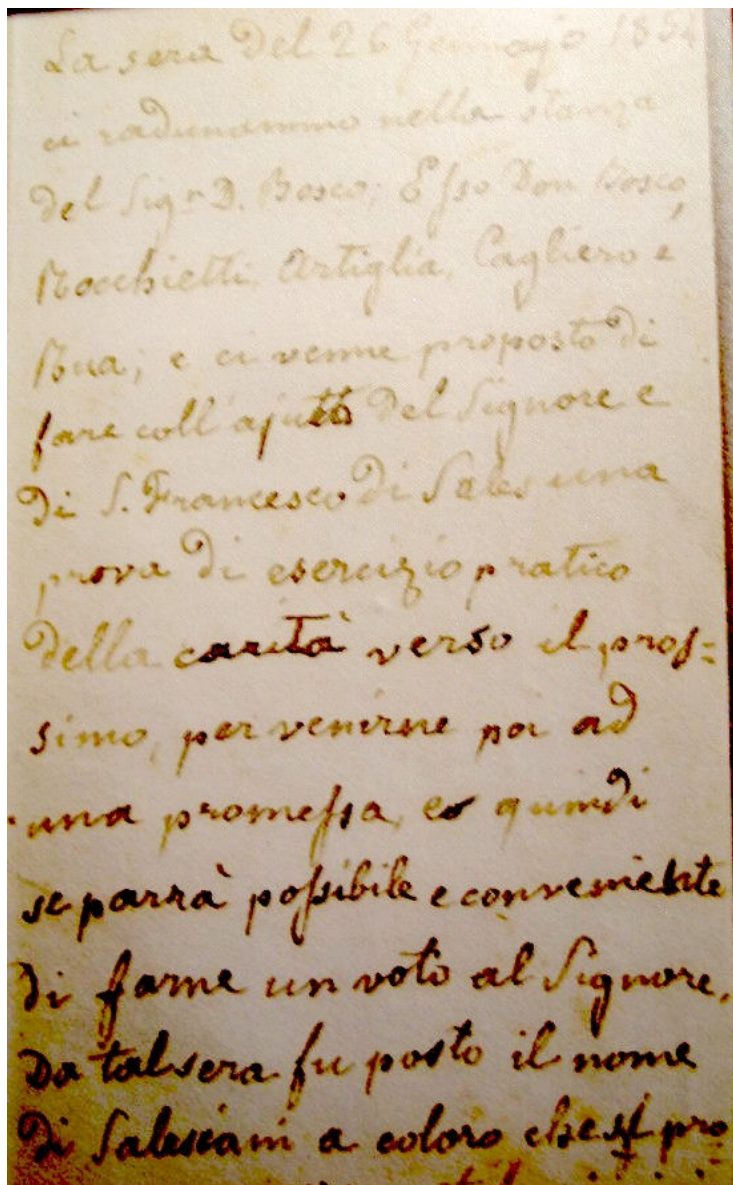 La sera del 26 Gennajo 1854
ci radunammo nella stanza
del Sigr D. Bosco; Esso Don Bosco,
Rocchietti, Artiglia, Cagliero e
Rua; e ci venne proposto di
fare coll'ajuto del Signore e
di S. Francesco di Sales una
prova di esercizio pratico
della carità verso il pros=
simo, per venirne poi ad
una promessa, e quindi
se parrà possibile e conveniente
di farne un voto al Signore.
Da tal sera fu posto il nome
di Salesiani a coloro che si pro